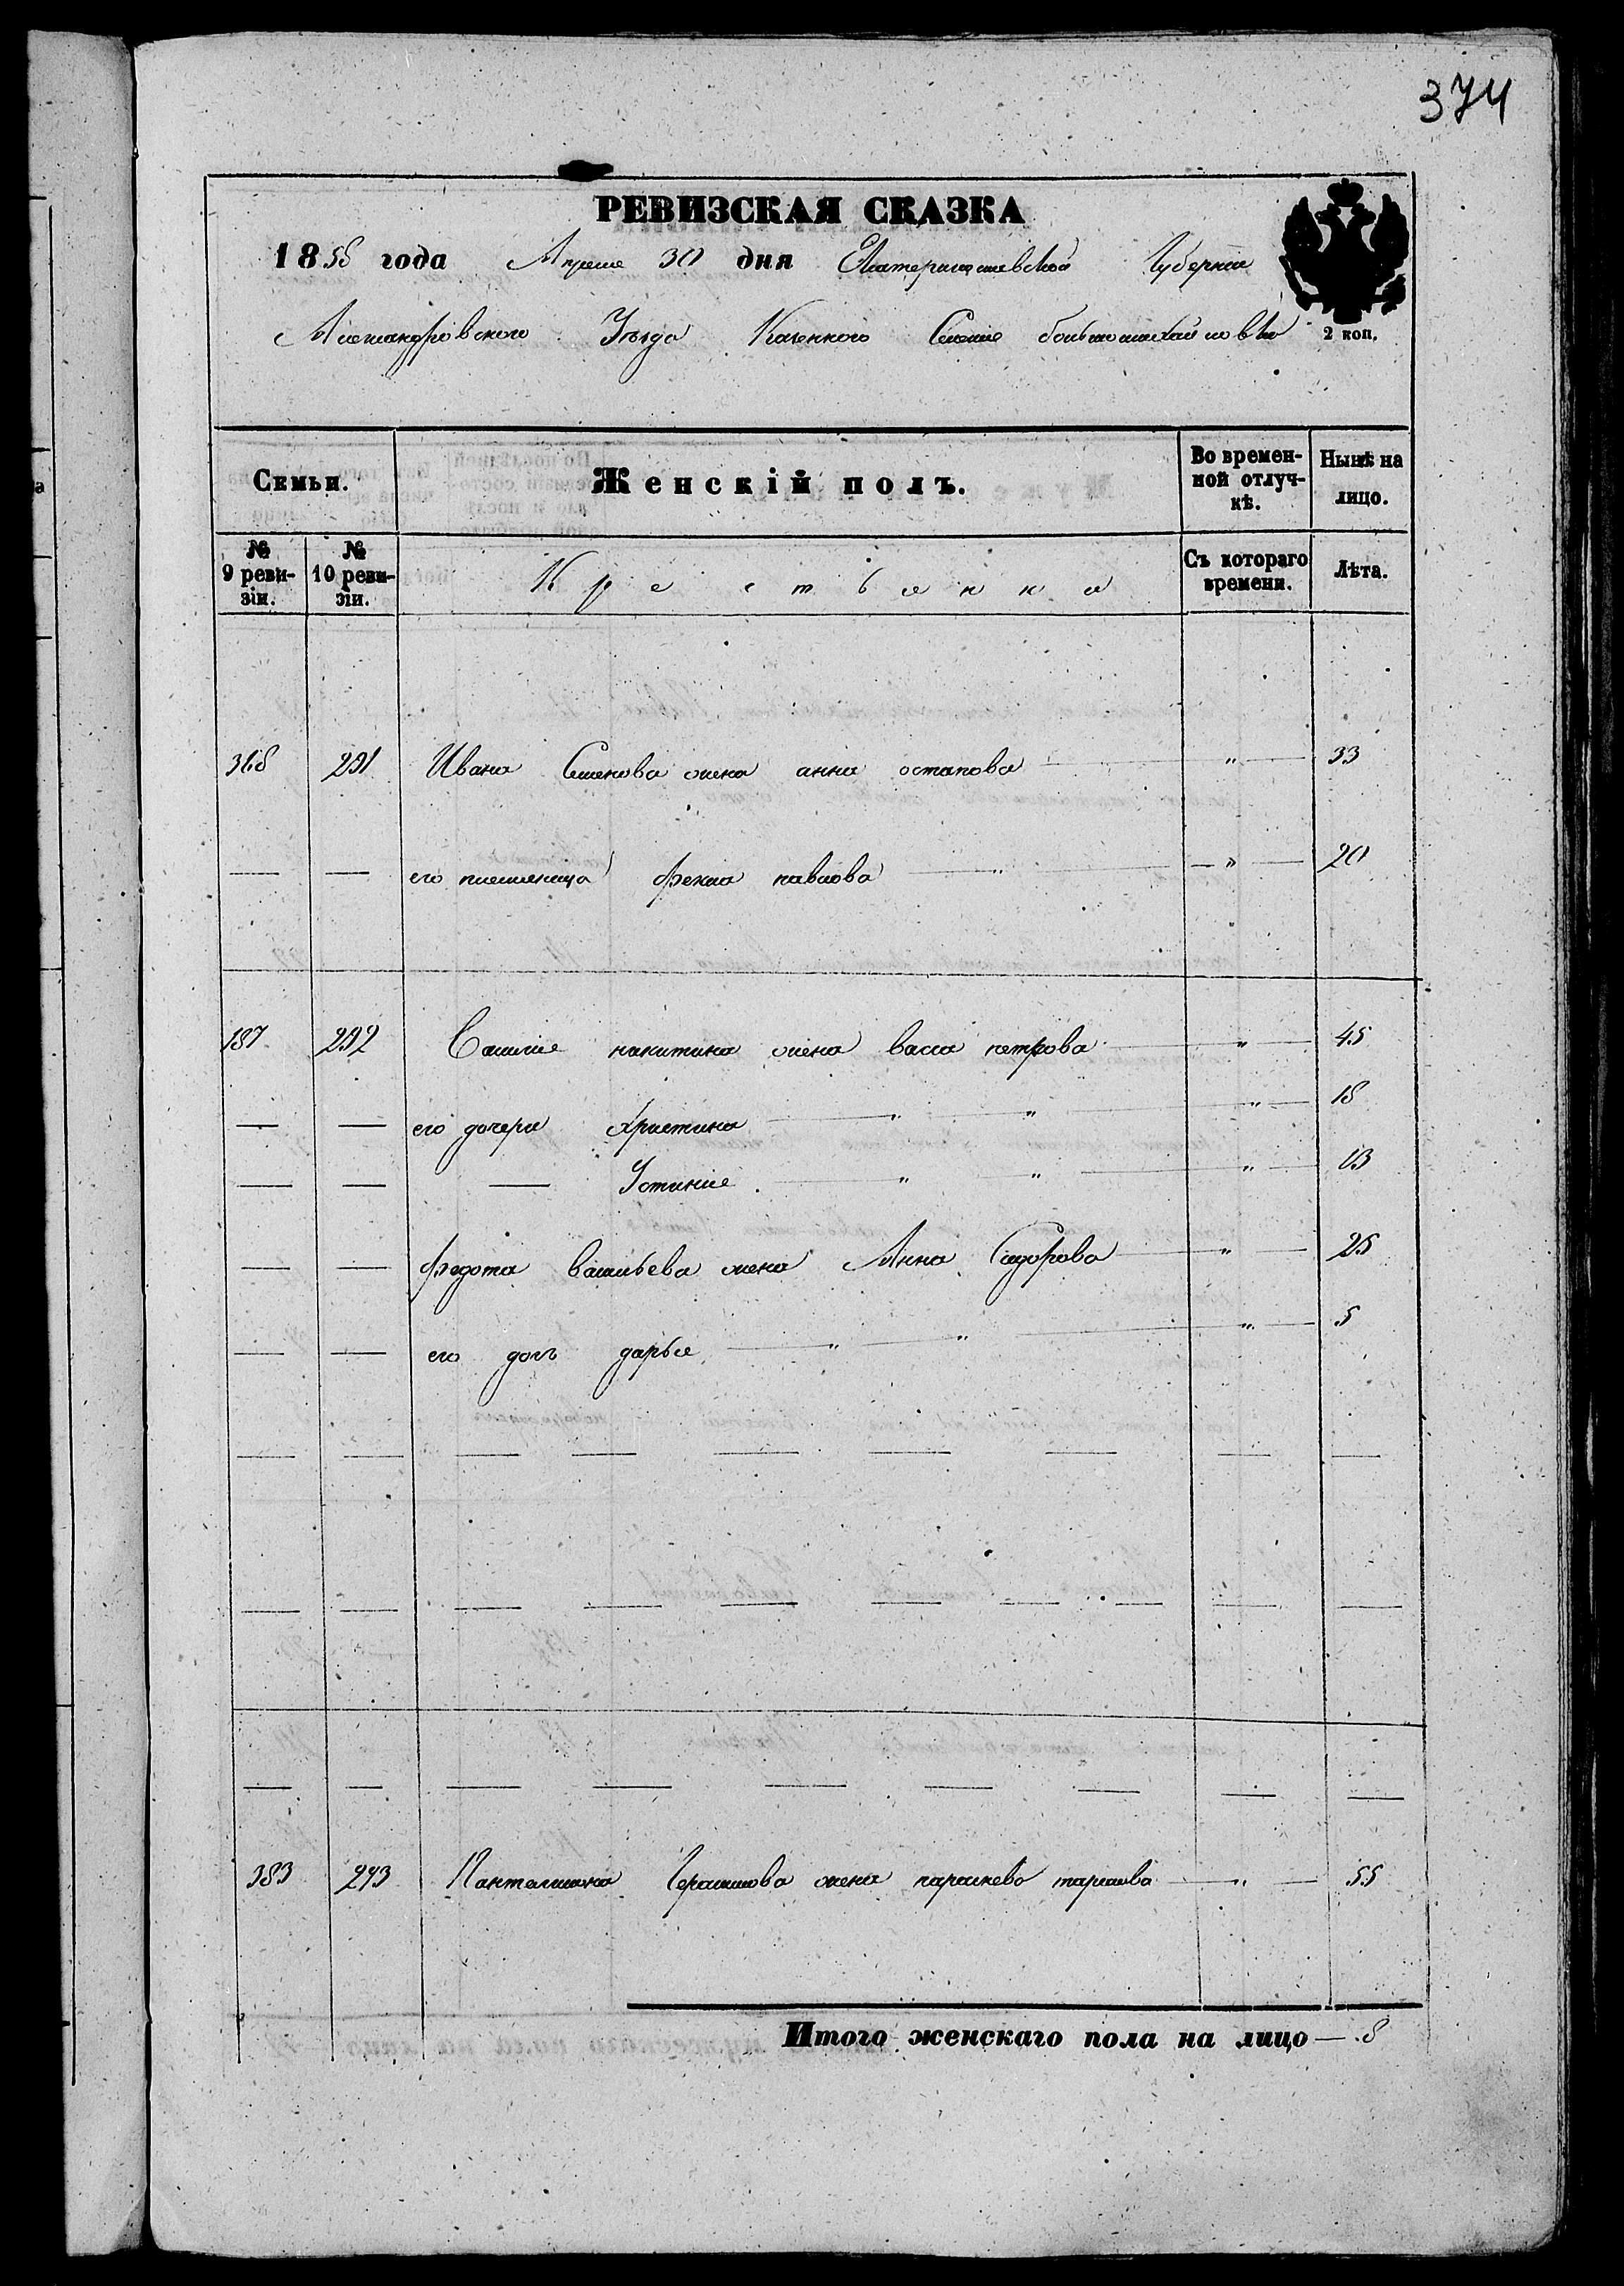 374
РЕВИЗСКАЯ СКАЗКА
1858 года Апреля 30 дня Екатеринославской Губернии
Александровского Уѣзда Казенного Селенія большомихайловки 2 коп.
Семьи. Женскій полъ. Во времен-ной отлуч-кѣ. Нынѣ на лицо.
№ 9 реви-зіи. № 10 реви-зіи. Крестьянки Съ котораго времени. Лѣта.
318 291 Ивана Семенова жена анна остапова " 33
— — его племяница фекла павлова " — " 20
187 292 Василія никитина жена васса петрова " 45
— — его дочери Христина " " " 18
— — — Устинія " " " 13
— — федота васильева жена Анна Сидорова " 25
— — его дочь дарья " " " 5
383 293 Панталимона Герасимова жена параскева тарасова " 55
Итого женскаго пола на лицо — 8